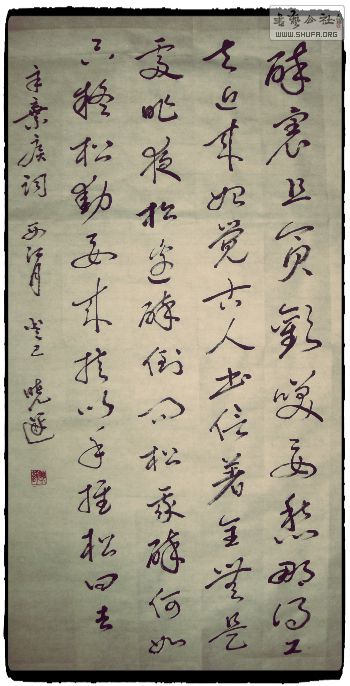 書法公社
WWW.SHUFA.ORG
醉裏且貪歡笑要愁那得工
夫近来始覺古人书信著全無是
處昨夜松邊醉倒问松我醉何如
只疑松動要来扶以手推松曰去
辛棄疾词 西江月 癸巳 晓